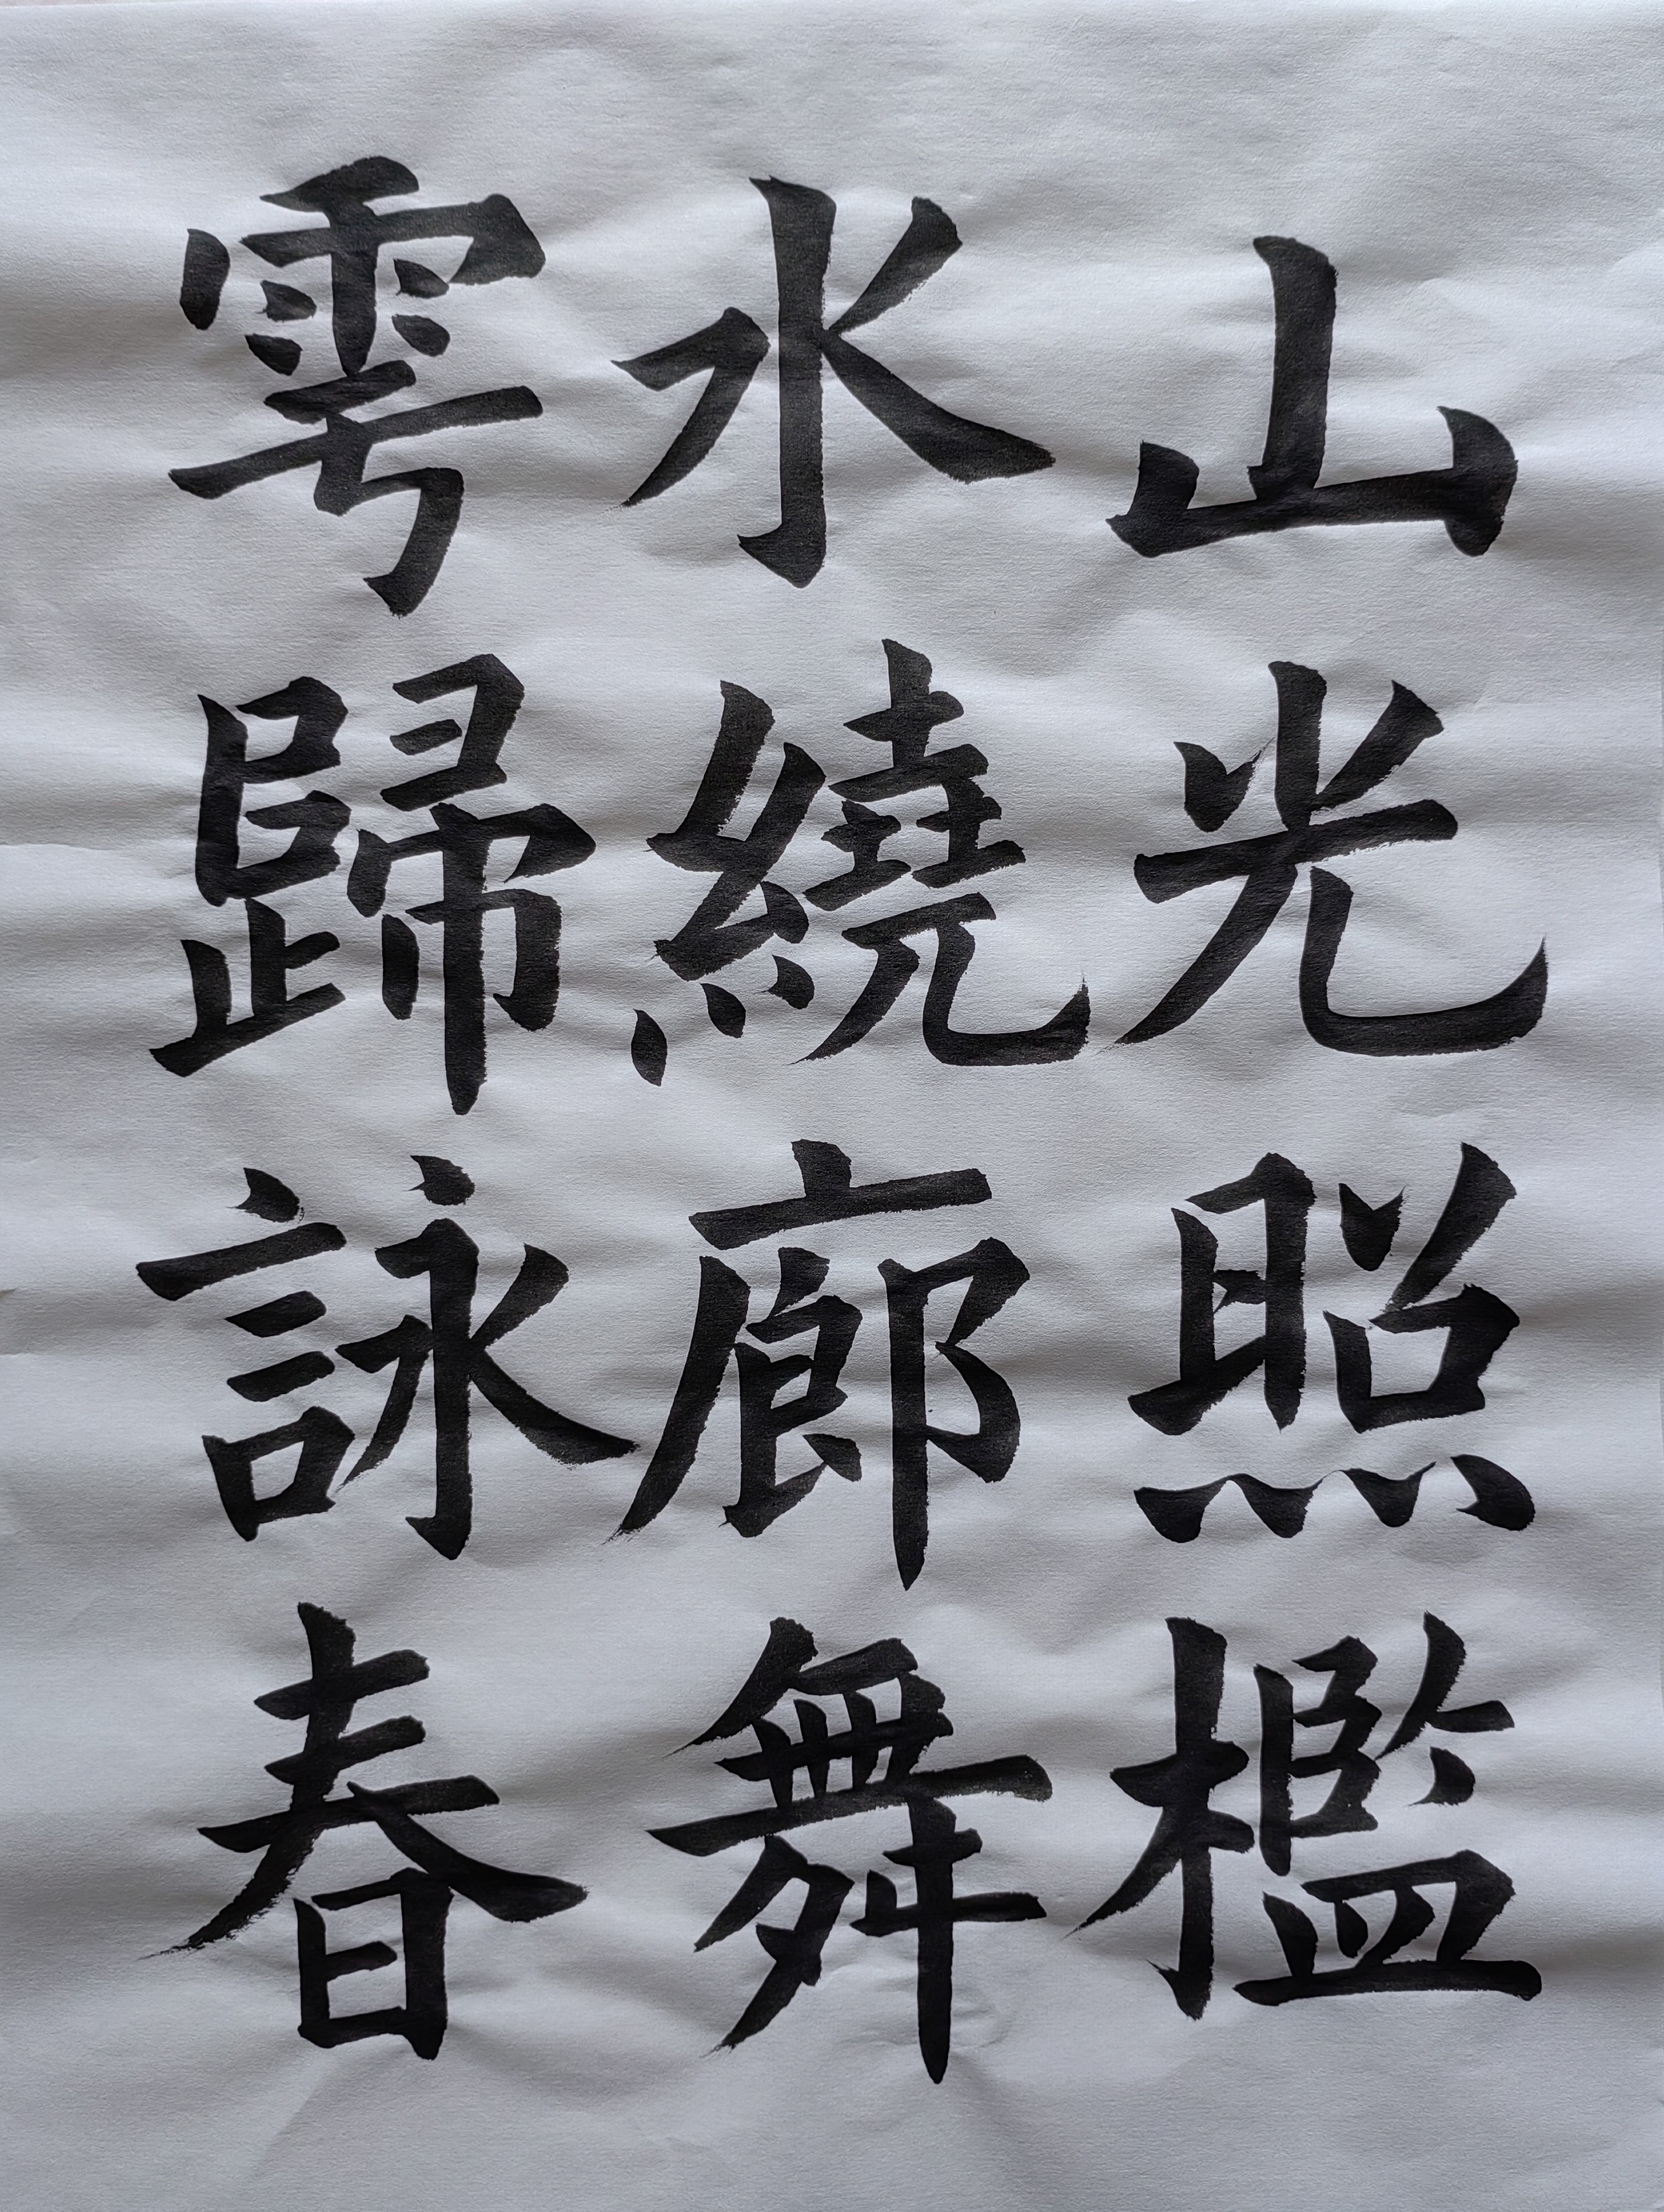 山光照檻
水繞廊舞
雩歸詠春